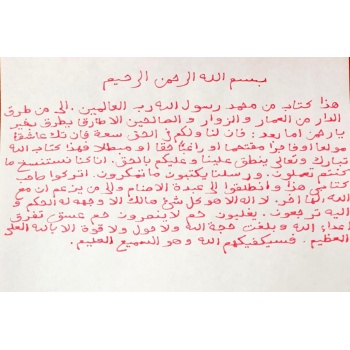 بسم الله الرحمن الرحيم
هذا كتاب من محمد رسول الله رب العالمين. إلى من طرق
الدار من العمار والزوار والصالحين الا طارقا يطرق بخير
يارحمن اما بعد: فان لنا ولكم في الحق سعة فإن تك عاشقا
مولعا او فاجرا مقتحما او راغبا حقا او مبطلا فهذا كتاب الله
تبارك وتعالى ينطق علينا وعليكم بالحق. انا كنا نستنسخ ما
كنتم تعملون. ورسلنا يكتبون ما تمكرون. اتركوا صاحب
كتابي هذا وانطلقوا الى عبدة الاصنام والى من يزعم ان مع
الله الها آخر. لا اله الا هو كل شئ هالك الا وجهه له الحكم و
اليه ترجعون. يغلبون حم لا ينصرون حم عسق تفرق
اعداء الله و بلغت حجة الله ولا حول ولا قوة الا بالله العلي
العظيم. فسيكفيكهم الله وهو السميع العليم.